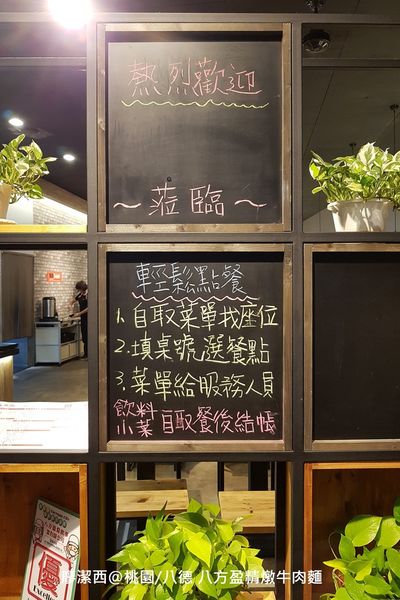 熱烈歡迎
~ 蒞臨 ~
輕鬆點餐
1. 自取菜單找座位
2. 填桌號選餐點
3. 菜單給服務人員
飲料
小菜 自取餐後結帳
優
潔西@桃園/八德 八方盈精燉牛肉麵